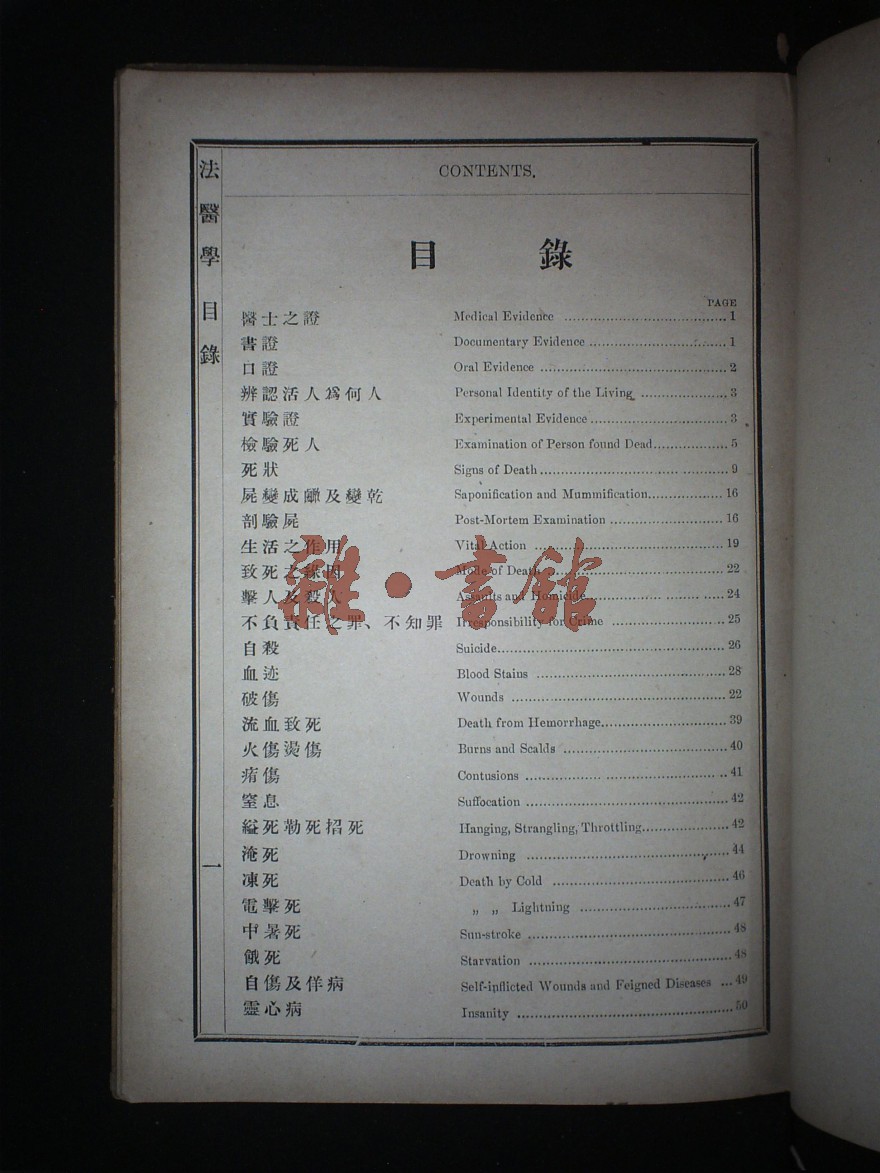 CONTENTS.
法醫學 目錄
目錄
PAGE
醫士之證 Medical Evidence 1
書證 Documentary Evidence 1
口證 Oral Evidence 2
辨認活人爲何人 Personal Identity of the Living 3
實驗證 Experimental Evidence 3
檢驗死人 Examination of Person found Dead 5
死狀 Signs of Death 9
屍變成及變乾 Saponification and Mummification 16
剖驗屍 Post-Mortem Examination 16
生活之作用 Vital Action 19
致死之 Mode of Death 22
擊人及殺人 Assaults and Homicide 24
不負責任之罪、不知罪 Irresponsibility for Crime 25
自殺 Suicide 26
血迹 Blood Stains 28
破傷 Wounds 22
流血致死 Death from Hemorrhage 39
火傷燙傷 Burns and Scalds 40
㾗傷 Contusions 41
窒息 Suffocation 42
縊死勒死搯死 Hanging, Strangling, Throttling 42
淹死 Drowning 44
凍死 Death by Cold 46
電擊死 „ „ Lightning 47
中暑死 Sun-stroke 48
餓死 Starvation 48
自傷及佯病 Self-inflicted Wounds and Feigned Diseases 49
靈心病 Insanity 50
一
雜·書館